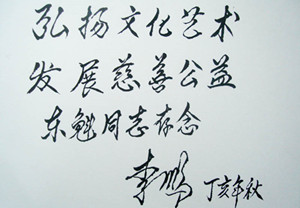 弘扬文化艺术
发展慈善公益
东魁同志存念
李鹏 丁亥年秋